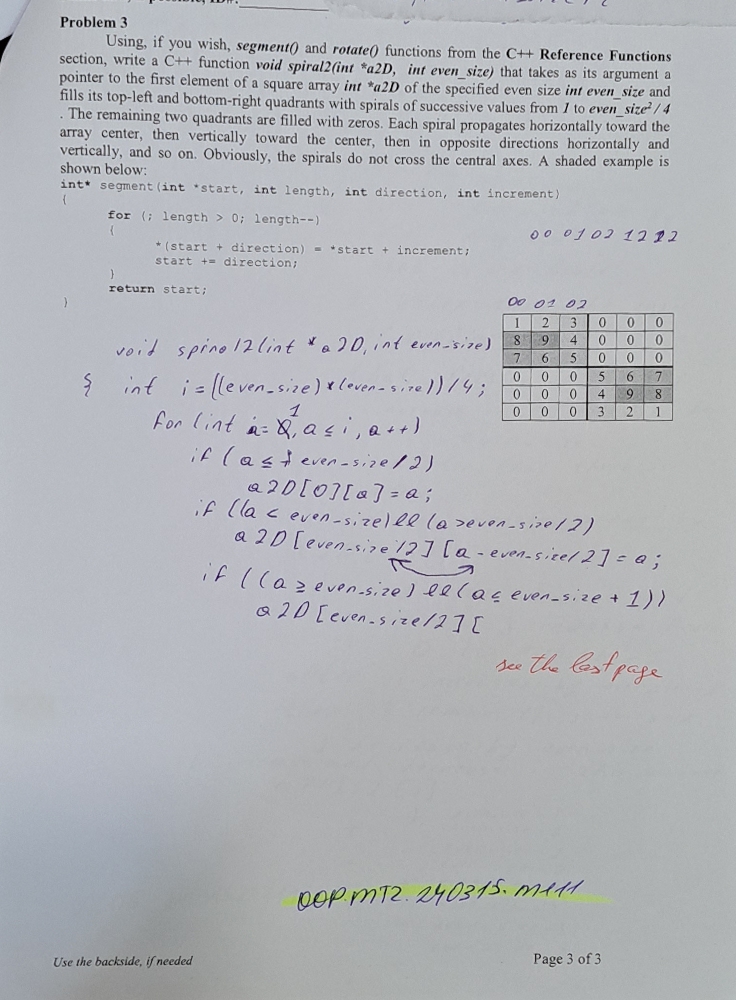 Problem 3
Using, if you wish, segment() and rotate() functions from the C++ Reference Functions
section, write a C++ function void spiral2(int *a2D, int even_size) that takes as its argument a
pointer to the first element of a square array int *a2D of the specified even size int even_size and
fills its top-left and bottom-right quadrants with spirals of successive values from 1 to even_size²/4
. The remaining two quadrants are filled with zeros. Each spiral propagates horizontally toward the
array center, then vertically toward the center, then in opposite directions horizontally and
vertically, and so on. Obviously, the spirals do not cross the central axes. A shaded example is
shown below:
int* segment(int *start, int length, int direction, int increment)
{
for (; length > 0; length--)
{
*(start + direction) = *start + increment;
start += direction;
}
return start;
}
00 01 02 12 22
00 01 02
1 2 3 0 0 0
8 9 4 0 0 0
7 6 5 0 0 0
0 0 0 5 6 7
0 0 0 4 9 8
0 0 0 3 2 1
void spiral2(int *a2D, int even_size)
{ int i = ((even_size)*(even_size))/4;
for (int a = 1, a ≤ i, a++)
if (a ≤ even_size/2)
a2D[0][a] = a;
if ((a < even_size) && (a > even_size/2)
a2D[even_size/2][a - even_size/2] = a;
if ((a ≥ even_size) && (a ≤ even_size + 1))
a2D[even_size/2][
see the last page
OOP.MT2.240315.M e11
Use the backside, if needed
Page 3 of 3